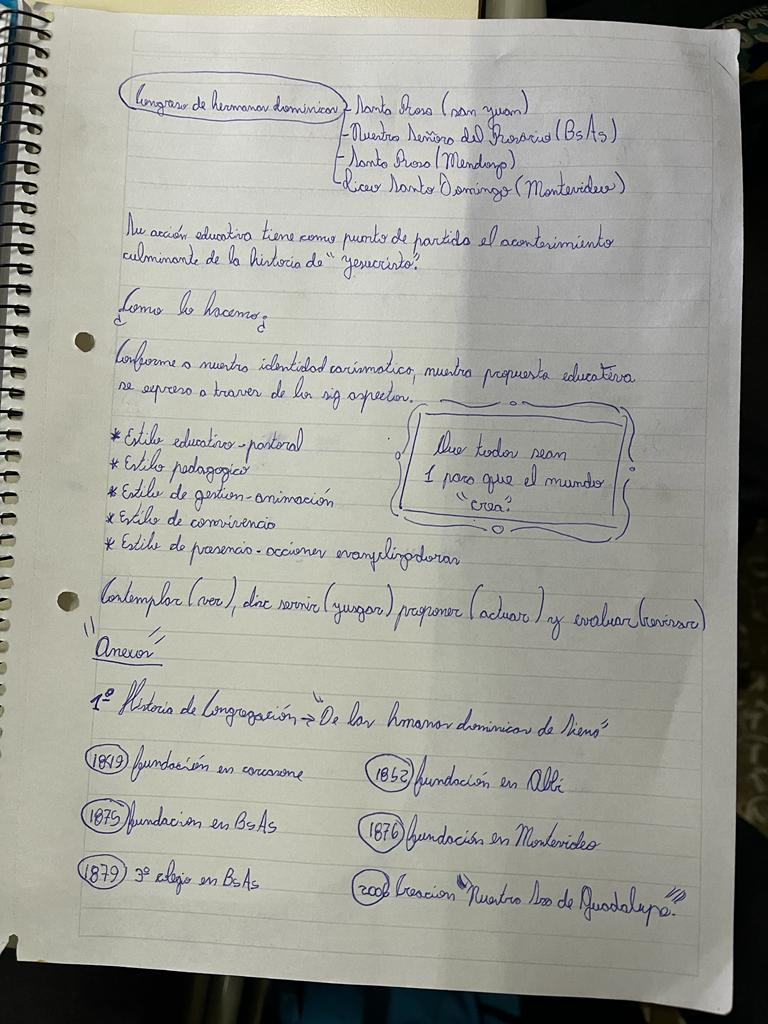 Congreso de hermanas dominicas - Santa Rosa (san Yuan)
- Nuestra Señora del Rosario (BsAs)
- Santa Rosa (Mendoza)
- Liceo Santo Domingo (Montevideo)
Su acción educativa tiene como punto de partida el acontecimiento
culminante de la historia de "Yesucristo".
¿Como lo hacemos?
Conforme a nuestra identidad carismatica, nuestra propuesta educativa
se expresa a traves de los sig aspectos.
* Estilo educativo-pastoral
* Estilo pedagogico
* Estilo de gestion-animación
* Estilo de convivencia
* Estilo de presencia-acciones evangelizadoras
Que todos sean
1 para que el mundo
"crea".
Contemplar (ver), disc sernir (yusgar) proponer (actuar) y evaluar (revisar)
"Anexos"
1º Historia de Congregación → "De las hmanas dominicas de Siena"
1849 fundación en carcasone
1852 fundación en Albi
1875 fundacion en BsAs
1876 fundación en Montevideo
1879 3º colegio en BsAs
2006 Creacion "Nuestra Sra de Guadalupe."